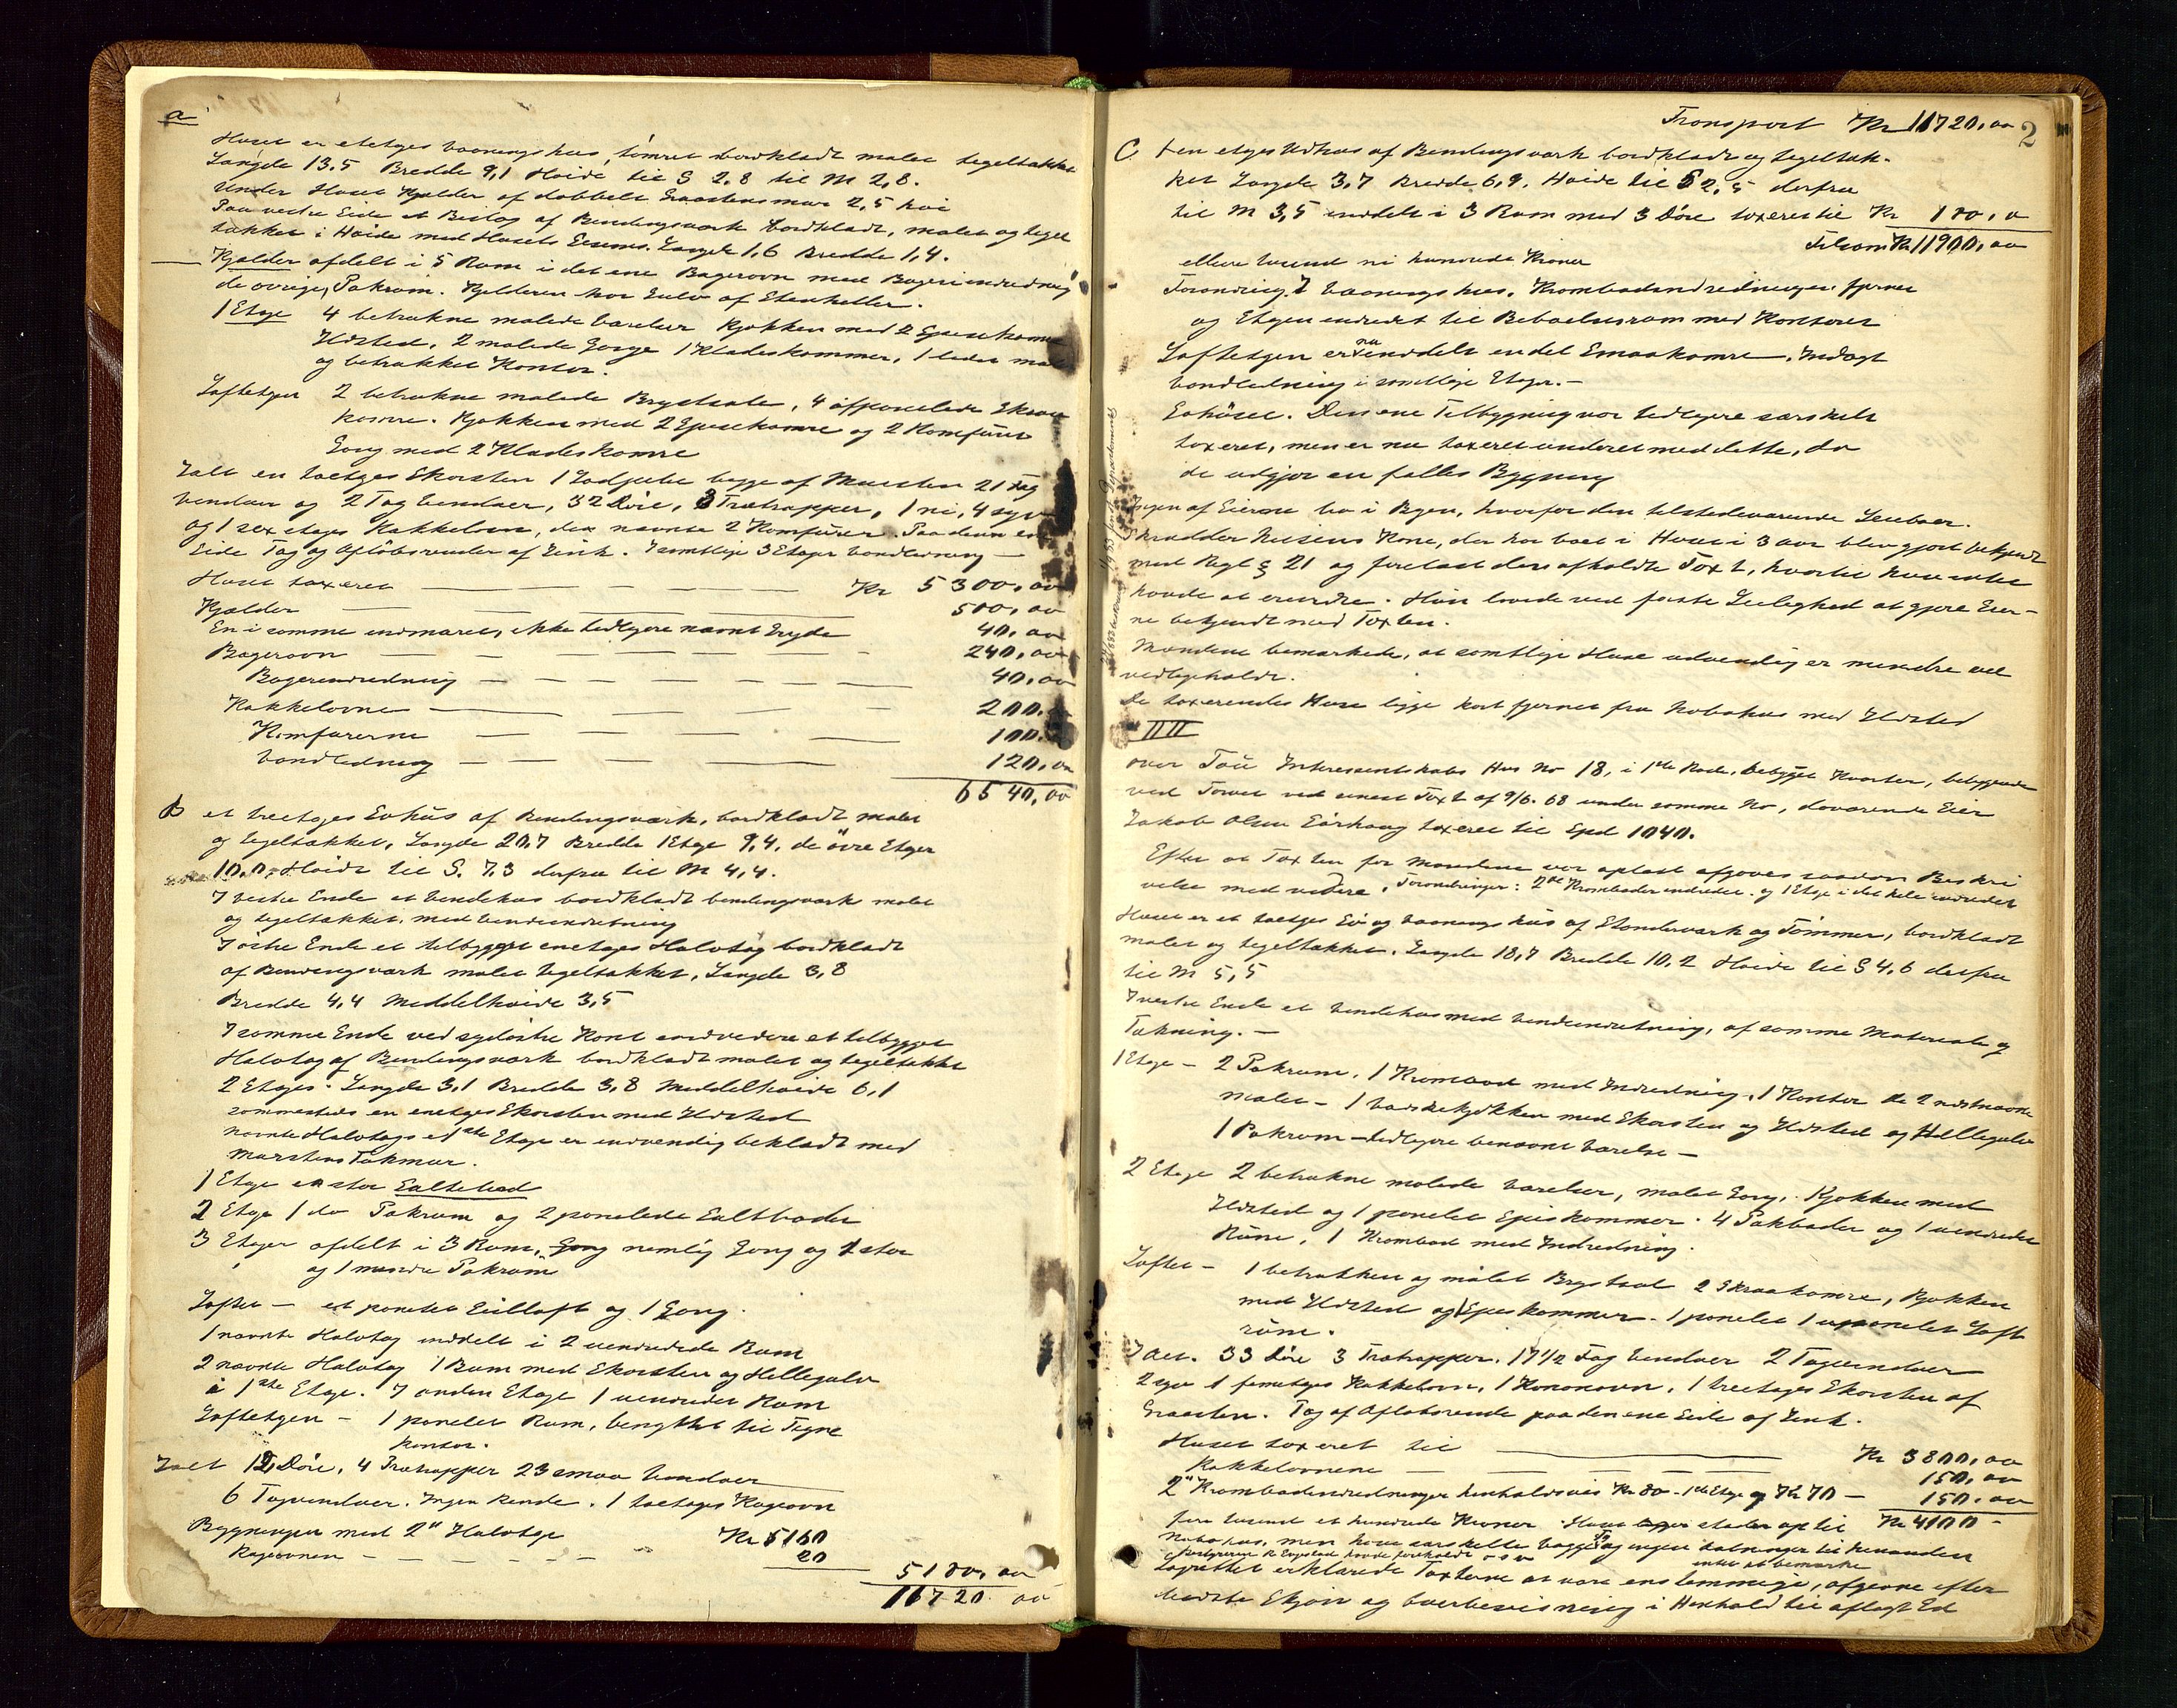 a
Huset er etetges Vaaningshus, tømret bordklædt malet tegeltækket
Længde 13.5 Bredde 9,1 Høide til G 2,8 til M 2,8.
Under Huset Kjælder af dobbelt Graastensmur 2,5 høi
Paa vestre Side et Bislag af Bindingsværk bordklædt, malet og tegel
tækket i Høide med Husets Gesims. Længde 1,6 Bredde 1,4.
Kjælder afdelt i 5 Rum i det ene Bagerovn med Bageriindredning
de øvrige, Pakrum. Kjelderen har Gulv af Stenheller.
1 Etage 4 betrukne malede Værelser Kjøkken med 2 Spisekamre
Ildsted, 2 malede Gange 1 Klædeskammer, 1 malet
og betrukket Kontor.
Loftetgen 2 betrukne malede Brystsale, 4 afpanelede Skraa
kamre. Kjøkken med 2 Spisekamre og 2 Komfurer
Gang med 2 Klædeskamre
Ialt en toetges Skorsten 1 Ildfjelte begge af Mursten 21 Fag
Venduer og 2 Tag Venduer, 32 Døre, 3 Trætrapper, 1 ni, 4 syv
og 1 sex etages Kakkelovn, de nævnte 2 Komfurer. Paa den ene
Side Tag og Afløbsrender af Zink. I samtlige 3 Etager Vandledning —
Huset taxeret — — — — Kr 5300,00
Kjælder — — — 500,00
En i samme indmuret, ikke tidligere nævnt Gryde 40,00
Bagerovn — — — — — 240,00
Bagerindredning — — — — 40,00
Kakkelovne — — — — 200.
Komfurerne — — — — 100.
Vandledning — — — — 120,00
6540,00
B et treetges Søhus af Bindingsværk, bordklædt malet
og tegeltækket, Længde 20,7 Bredde 1 Etge 9,4, de øvre Etger
10,0. Høide til G. 7,3 derfra til M 4,4.
I vestre Ende et Vendehus bordklædt bindingsværk malet
og tegeltækket, med Vendeindretning
I østre Ende et tilbygget enetages Halvtag bordklædt
af Bindingsværk malet tegeltækket, Længde 3,8
Bredde 4,4 Middelhøide 3,5
I samme Ende ved sydøstre Kant endvidere et tilbygget
Halvtag af Bindingsværk bordklædt malet og tegeltækket
2 Etages. Længde 3,1 Bredde 3,8 Middelhøide 6,1
sammesteds en enetges Skorsten med Ildsted
nævnte Halvtags 1ste Etage er indvendig beklædt med
Murstens Takmur.
1 Etage en stor Saltebod
2 Etage 1 do Pakrum og 2 panelede Saltboder
3 Etager afdelt i 3 Rum, Gang nemlig Gang og 1 stor
og 1 mindre Pakrum
Loftet — et panelet Seilloft og 1 Gang.
1 nævnte Halvtag inddelt i 2 uendredede Rum
2 nævnte Halvtag 1 Rum med Skorsten og Hellegulv
i 1ste Etage. I anden Etage 1 uendredet Rum
Loftetgen — 1 panelet Rum, benyttet til Tegne
kontor.
Ialt 12 Døre, 4 Trætrapper 23 smaa Venduer
6 Tagvenduer. Ingen Rende. 1 toetages Kageovn
Bygningen med 2" Halvtage Kr 5160
Kageovnen — — — — — 20
5180,00
11720 00
Transport Kr 11720,00 2
C en etges Udhus af Bindingsværk bordklædt og tegeltæk-
ket Længde 3,7 Bredde 6,9. Høide til G 2,5 derfra
til M 3,5 inddelt i 3 Rum med 3 Døre taxeret til Kr 180,00
Tilsam Kr 11900,00
elleve tusend ni hundrede Kroner
Forandring. I Vaaningshus. Krambodindredningen fjernet
og Etgen endret til Beboelsesrum med Kontorer
Loftetgen er nu inddelt en del Smaakamre. Indlagt
Vandledning i samtlige Etager. —
Søhuset. Den ene Tilbygning var tidligere særskilt
taxeret, men er nu taxeret under et med dette, da
de udgjør en fælles Bygning
Ingen af Eierne bor i Byen, hvorfor den tilstedeværende Leieboer.
Skrædder Nielsens Kone, der har boet i Huset i 3 aar blev gjort bekjendt
med Regl § 21 og forelæst den afholdte Taxt, hvortil hun intet
havde at erindre. Hun lovede ved første Leilighed at gjøre Eier-
ne bekjendt med Taxten.
Mændene bemærkede, at samtlige Huse udvendig er mindre vel
vedligeholdt.
De taxerendes Huse ligge kort fjernet fra Nabohus med Ildsted
II II
over Tau Interessentskabs Hus No 18, i 1ste Rode, bebygget Kvarter, beliggende
ved Torvet ved sinest Taxt af 9/6. 68 under samme No, daværende Eier
Jakob Olsen Sørhaug taxeret til Spd 1040.
Efter at Taxten for Mændene var oplæst afgaves saadan Beskri
velse med videre. Forandringer: 2de Kramboder endredet og 1 Etge i det hele endredet
Huset er et toetges Sø og Vaanings hus af Standerværk og Tømmer, bordklædt
malet og tegeltækket. Længde 18,7 Bredde 10,2 Høide til G 4,6 derfra
til M 5,5
I vestre Ende et Vendehus med Vendeindretning, af samme Materiale og
Tækning. —
1 Etage — 2 Pakrum. 1 Krambod med Indredning, 1 Kontor de 2 sidstnævnte
malet — 1 Vaskekjøkken med Skorsten og Ildsted og Hellegulv
1 Pakrum — tidligere benævnt Værelse —
2 Etage 2 betrukne malede Værelser, malet Gang, Kjøkken med
Ildsted og 1 panelet Spiskammer. 4 Pakboder og 1 uendredet
Rum. 1 Krambod med Indredning.
Loftet — 1 betrukken og malet Brystsal 2 Skraakamre, Kjøkken
med Ildsted og 1 Spiskammer. 1 panelet 1 upanelet Loft
rum.
I alt. 33 Døre 3 Trætrapper. 17 1/2 Fag Venduer 2 Tagvenduer
2 syv 1 femetges Kakkelovn, 1 Kanonovn. 1 treetages Skorsten af
Graasten. Tag af Afløbsrende paa den ene Side af Zink.
Huset taxeret til — Kr 3800,00
Kakkelovnene — — — 150,00
2" Krambodindredninger henholdsvis Kr 80 — 1ste Etge og Kr 70 — 150.00
fire tusend et hundrede Kroner. Huset støder op til Kr 4100 —
Nabohus, men have særskilte Vægge og ingen Aabninger til hinanden
intet at bemærke
Lagrettet erklærede Taxterne at være enstemmige, afgivne efter
bedste Skjøn og Overbevisning i Henhold til aflagt Ed